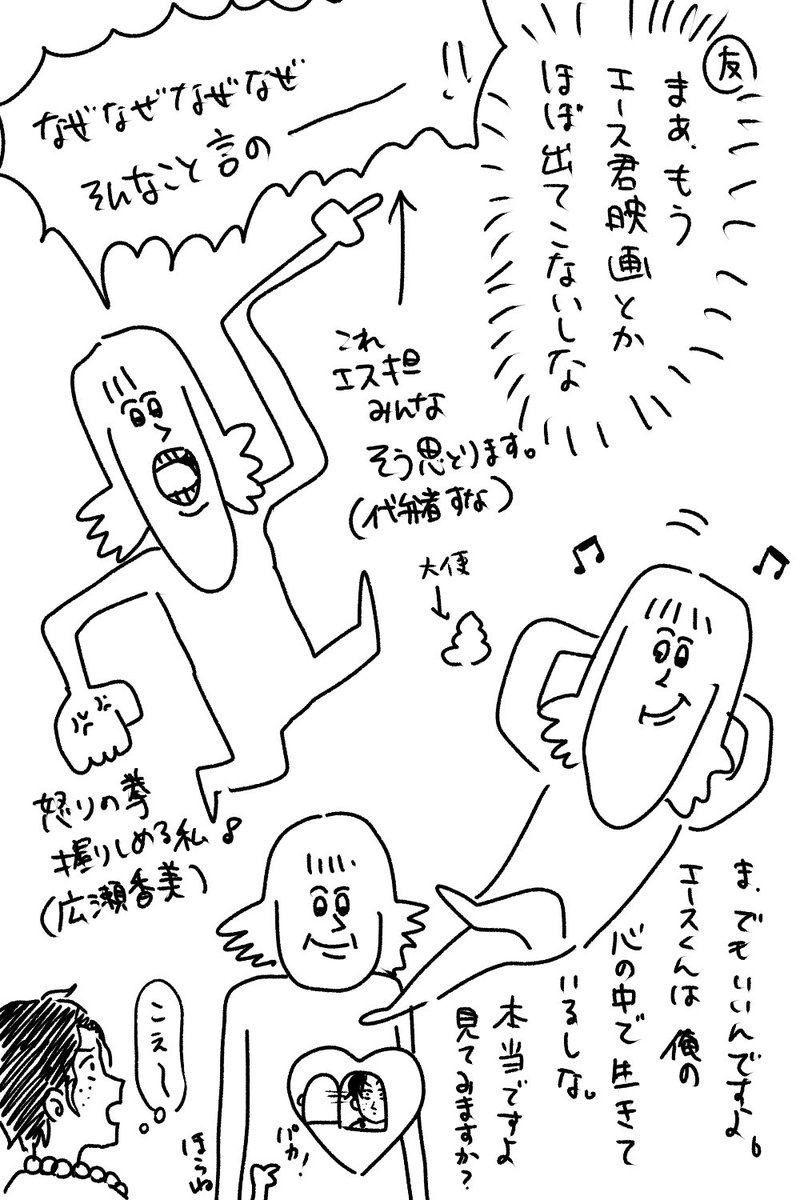 友
まぁ、もう
エース君映画とか
ほぼ出てこないしな
なぜなぜなぜなぜ
そんなこと言の――!!
これ
エス担
みんな
そう思とります。
(代弁者すな)
大便
怒りの拳
握りしめる私♪
(広瀬香美)
ま、でもいいんですよ。
エースくんは 俺の
心の中で生きて
いるしな。
本当ですよ
見てみますか?
パカ!
ほらね
こえ〜